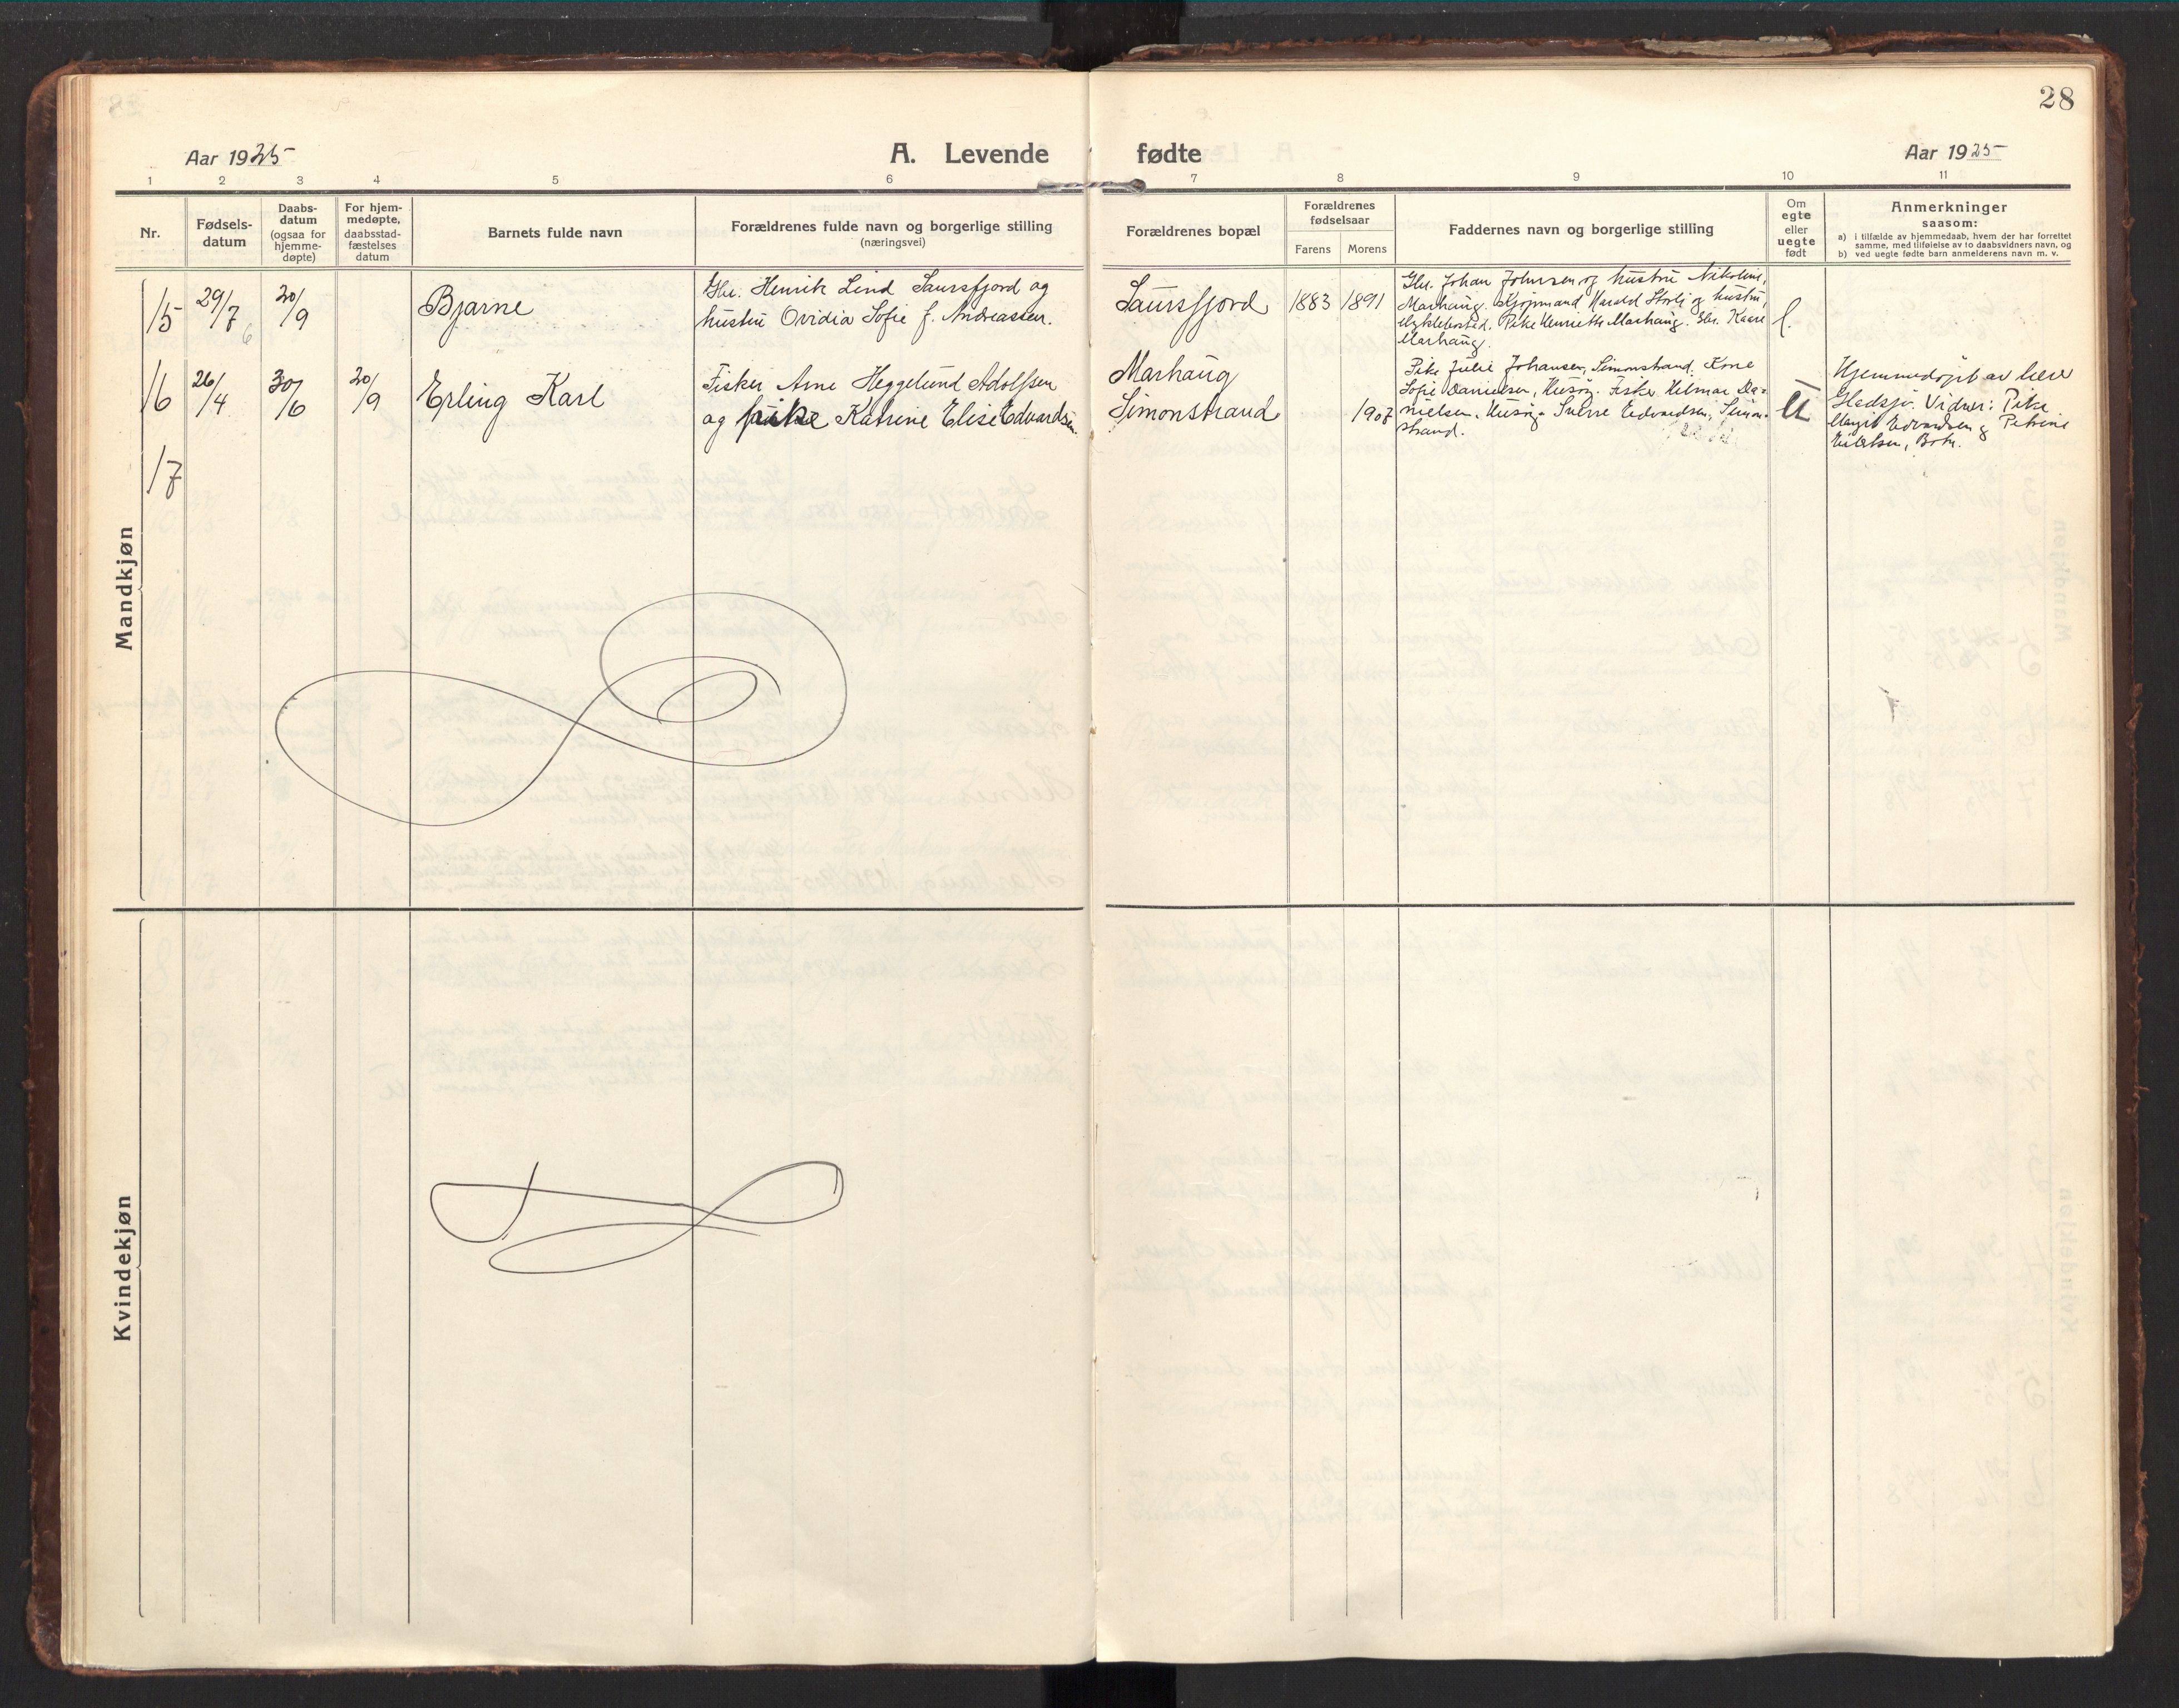 28
Aar 1925
A. Levende fødte
Aar 1925
1 2 3 4 5 6 7 8 9 10 11
Nr.
Fødsels-
datum
Daabs-
datum
(ogsaa for
hjemme-
døpte)
For hjem-
medøpte,
daabsstad-
fæstelses
datum
Barnets fulde navn
Forældrenes fulde navn og borgerlige stilling
(næringsvei)
Forældrenes bopæl
Forældrenes
fødselsaar
Farens Morens
Faddernes navn og borgerlige stilling
Om
egte
eller
uegte
født
Anmerkninger
saasom:
a) i tilfælde av hjemmedaab, hvem der har forrettet
samme, med tilføielse av to daabsvidners navn, og
b) ved uegte fødte barn anmelderens navn m. v.
Mandkjøn
15
29/7
20/9
Bjarne
Gbr. Henrik Lind Saursfjord og
hustru Ovidia Sofie f. Andreassen.
Saursfjord
1883 1891
Gbr. Johan Johnsen og hustru Nikoline,
Marhaug. Kjøpmand Harald Storli og hustru,
Myklebostad. Pike Henriette Marhaug. Gbr. Kaare
Marhaug.
16
26/4
30/6
20/9
Erling Karl
Fisker Arne Heggelund Adolfsen
og pike Katrine Elise Edvardsen.
Marhaug
Simonstrand
1907
Pike Julie Johansen, Simonstrand. Kone
Sofie Danielsen, Husøy. Fisker Hilmar Da-
nielsen, Husøy. Sverre Edvardsen, Simon-
strand.
U
Hjemmedøpt av lærer
Gladsjø. Vidner: Pike
Margit Edvardsen og Petrine
Botn.
17
Kvindekjøn